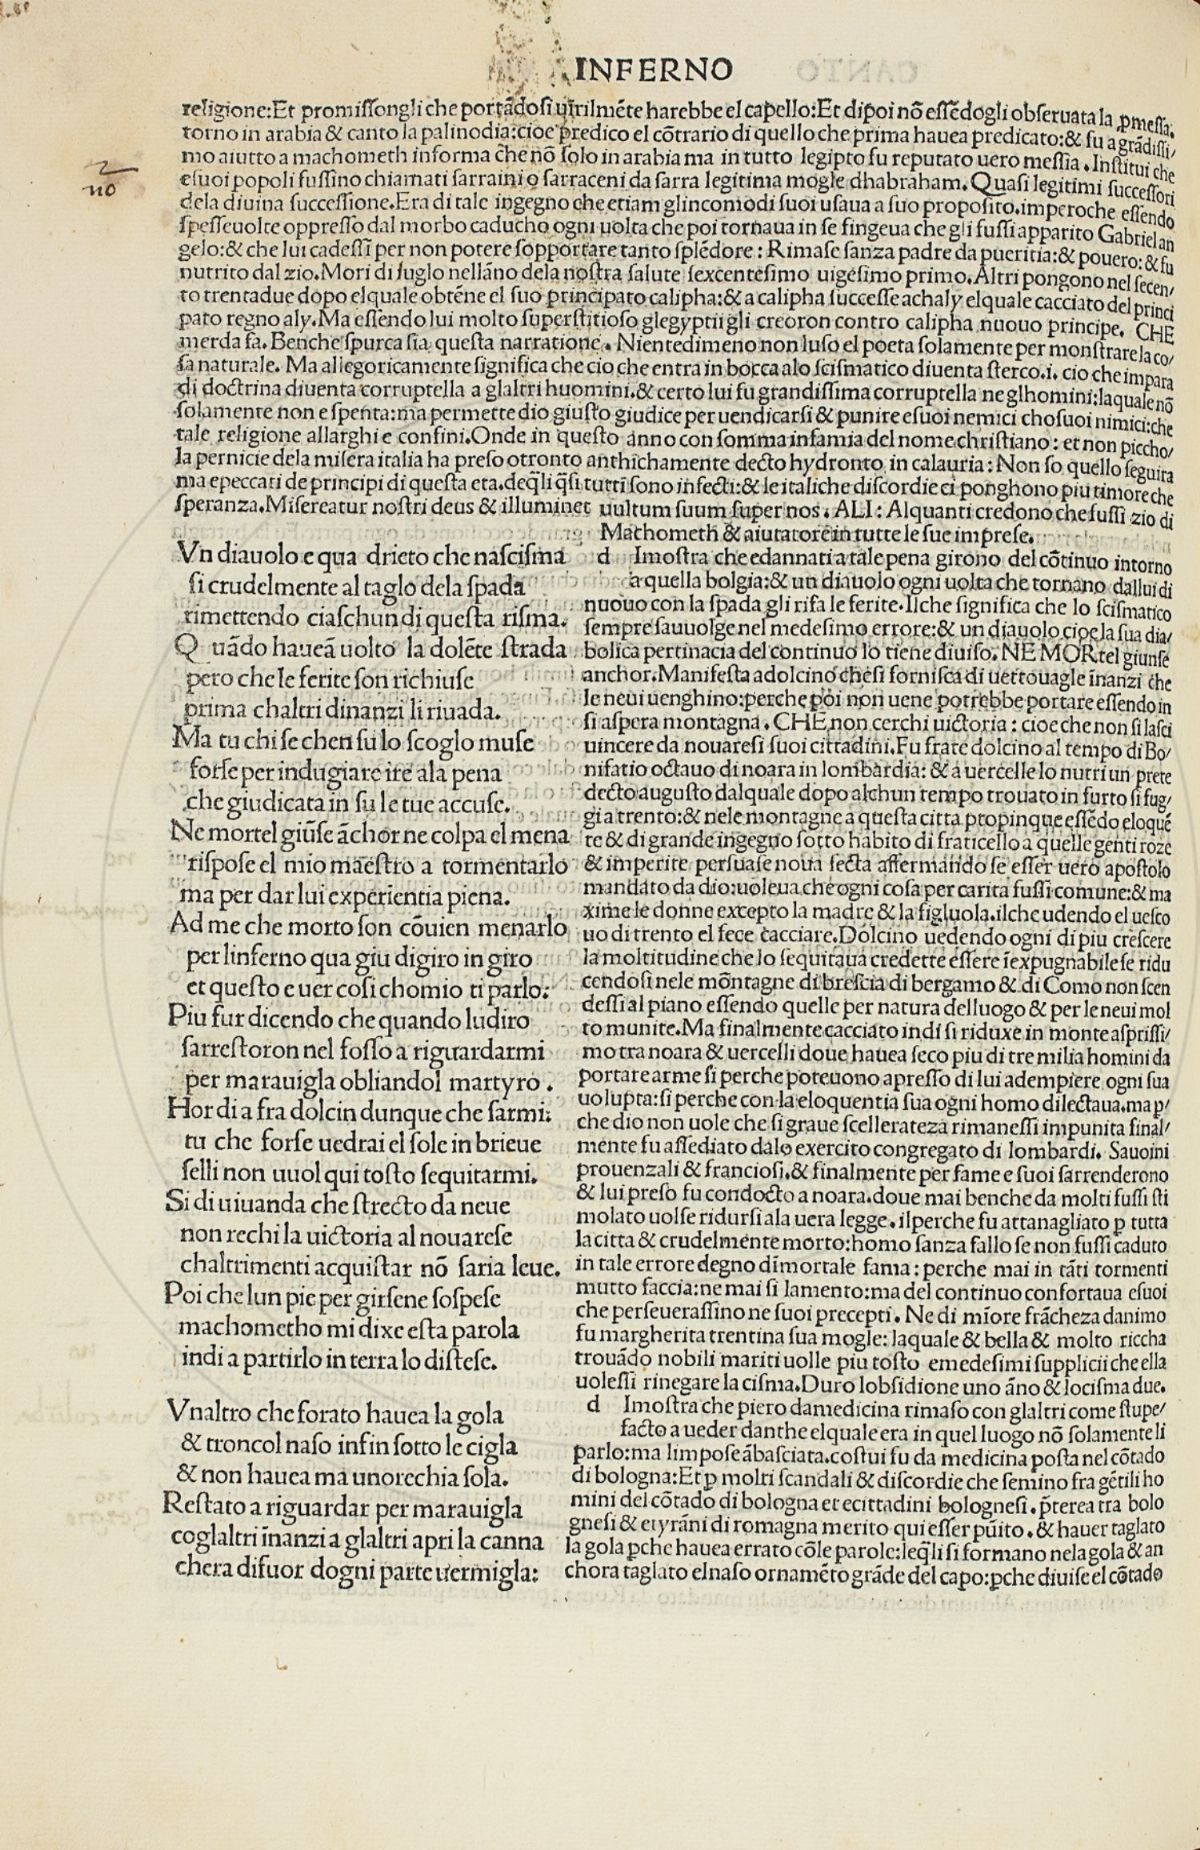 INFERNO
religione:Et promissongli che portãdosi uirilmẽte harebbe el capello:Et dipoi nõ essẽdogli obseruata la ꝓmessa:
torno in arabia & canto la palinodia:cioe predico el cõtrario di quello che prima hauea predicato:& fu a grãdissi/
mo aiutto a machometh informa che nõ solo in arabia ma in tutto legipto fu reputato uero messia. Institui che
esuoi popoli fussino chiamati sarraini o sarraceni da sarra legitima mogle dhabraham. Quasi legitimi successori
dela diuina successione. Era di tale ingegno che etiam glincomodi suoi usaua a suo proposito.imperoche essendo
spesseuolte oppresso dal morbo caducho ogni uolta che poi tornaua in se fingeua che gli fussi apparito Gabriel an
gelo:& che lui cadessi per non potere sopportare tanto splẽdore: Rimase sanza padre da pueritia:& pouero:& fu
nutrito dal zio.Mori di luglo nellãno dela nostra salute sexcentesimo uigesimo primo.Altri pongono nel secen/
to trentadue dopo elquale obtẽne el suo principato calipha:& a calipha successe achaly elquale cacciato del princi
pato regno aly. Ma essendo lui molto superstitioso glegyptii gli creoron contro calipha nuouo principe. CHE
merda fa. Benche spurca sia questa narratione. Nientedimeno non luso el poeta solamente per monstrare la co/
sa naturale. Ma allegoricamente significa che cio che entra in bocca alo scismatico diuenta sterco.i. cio che impara
di doctrina diuenta corruptella a glaltri huomini.& certo lui fu grandissima corruptella ne glhomini:laquale nõ
solamente non e spenta:ma permette dio giusto giudice per uendicarsi & punire esuoi nemici cho suoi nimici:che
tale religione allarghi e confini.Onde in questo anno con somma infamia del nome christiano: et non piccho/
la pernicie dela misera italia ha preso otronto anthichamente decto hydronto in calauria: Non so quello seguira
ma epeccati de principi di questa eta.deq̃li q̃si tutti sono infecti:& le italiche discordie ci ponghono piu timore che
speranza.Misereatur nostri deus & illuminet uultum suum super nos. ALI: Alquanti credono che fussi zio di
Machometh & aiutatore in tutte le sue imprese.
Vn diauolo e qua drieto che nascisma
si crudelmente al taglo dela spada
rimettendo ciaschun di questa risma.
Quãdo haueã uolto la dolẽte strada
pero che le ferite son richiuse
prima chaltri dinanzi li riuada.
Ma tu chi se chen su lo scoglo muse
forse per indugiare ire ala pena
che giudicata in su le tue accuse.
Ne mortel giũse ãchor ne colpa el mena
rispose el mio maestro a tormentarlo
ma per dar lui experientia piena.
Ad me che morto son cõuien menarlo
per linferno qua giu digiro in giro
et questo e uer cosi chomio ti parlo:
Piu fur dicendo che quando ludiro
sarrestoron nel fosso a riguardarmi
per marauigla obliandol martyro.
Hor di a fra dolcin dunque che sarmi:
tu che forse uedrai el sole in brieue
selli non uuol qui tosto sequitarmi.
Si di uiuanda che strecto da neue
non rechi la uictoria al nouarese
chaltrimenti acquistar nõ saria leue.
Poi che lun pie per girsene sospese
machometho mi dixe esta parola
indi a partirlo in terra lo distese.
Vnaltro che forato hauea la gola
& troncol naso infin sotto le cigla
& non hauea ma unorechia sola.
Restato a riguardar per marauigla
coglaltri ĩnanzi a glaltri apri la canna
chera difuor dogni parte uermigla:
d Imostra che edannati a tale pena girono del cõtinuo intorno
a quella bolgia:& un diauolo ogni uolta che tornano dallui di
nuouo con la spada gli rifa le ferite.Ilche significa che lo scismatico
sempre sauuolge nel medesimo errore:& un diauolo cioe la sua dia/
bolica pertinacia del continuo lo tiene diuiso. NE MORtel giunse
anchor.Manifesta a dolcino che si fornisca di uettouagle inanzi che
le neui uenghino:perche poi non uene potrebbe portare essendo in
si aspera montagna. CHE non cerchi uictoria: cioe che non si lasci
uincere da nouaresi suoi cittadini.Fu frate dolcino al tempo di Bo/
nifatio octauo di noara in lombardia: & a uercelle lo nutri un prete
decto augusto dalquale dopo alchun tempo trouato in furto si fug/
gi a trento:& nele montagne a questa citta propinque essẽdo eloquẽ
te & di grande ingegno sotto habito di fraticello a quelle genti roze
& imperite persuase noua secta affermando se esser uero apostolo
mandato da dio:uoleua che ogni cosa per carita fussi comune:& ma
xime le donne excepto la madre & la figluola.ilche udendo el uesco
uo di trento el fece cacciare.Dolcino uedendo ogni di piu crescere
la moltitudine che lo sequitaua credette essere ĩexpugnabile se ridu
cendosi nele mõntagne di brescia di bergamo & di Como non scen
dessi al piano essendo quelle per natura delluogo & per le neui mol
to munite.Ma finalmente cacciato indi si riduxe in monte asprissi/
mo tra noara & uercelli doue hauea seco piu di tre milia homini da
portare arme si perche poteuono apresso di lui adempiere ogni sua
uolupta:si perche con la eloquentia sua ogni homo dilectaua.ma p/
che dio non uole che si graue scellerateza rimanessi impunita final/
mente fu assediato dalo exercito congregato di lombardi. Sauoini
prouenzali & franciosi.& finalmente per fame e suoi sarrenderono
& lui preso fu condocto a noara.doue mai benche da molti fussi sti
molato uolse ridursi ala uera legge.ilperche fu attanagliato ꝑ tutta
la citta & crudelmente morto:homo sanza fallo se non fussi caduto
in tale errore degno dimortale fama: perche mai in tãti tormenti
mutto faccia:ne mai si lamento:ma del continuo confortaua esuoi
che perseuerassino ne suoi precepti. Ne di mĩore frãcheza danimo
fu margherita trentina sua mogle: laquale & bella & molto riccha
trouãdo nobili mariti uolle piu tosto emedesimi supplicii che ella
uolessi rinegare la cisma.Duro lobsidione uno ãno & locisma due.
d Imostra che piero damedicina rimaso con glaltri come stupe/
facto a ueder danthe elquale era in quel luogo nõ solamente li
parlo:ma limpose ãbasciata.costui fu da medicina posta nel cõtado
di bologna:Et ꝑ molti scandali & discordie che semino fra gẽtili ho
mini del cõtado di bologna et ecittadini bolognesi. p̃terea tra bolo
gnesi & etyrãni di romagna merito qui esser pũito.& hauer taglato
la gola ꝑche hauea errato cõle parole:leq̃li si formano nela gola & an
chora taglato elnaso ornamẽto grãde del capo:ꝑche diuise el cõtado